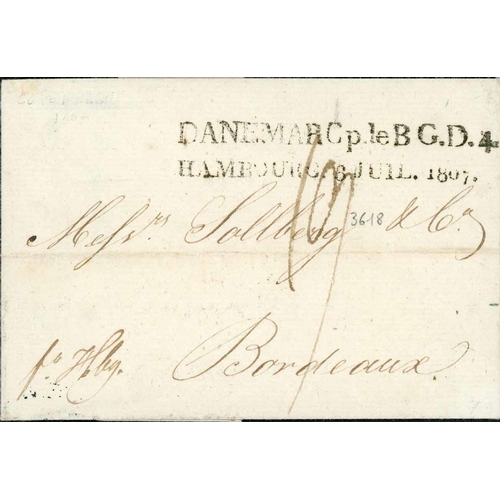 DANEMARC p. le B G. D. 4.
HAMBOURG. 6 JUIL. 1807.
Messrs. Sollberg & Co
3618
fo Hbg. Bordeaux.